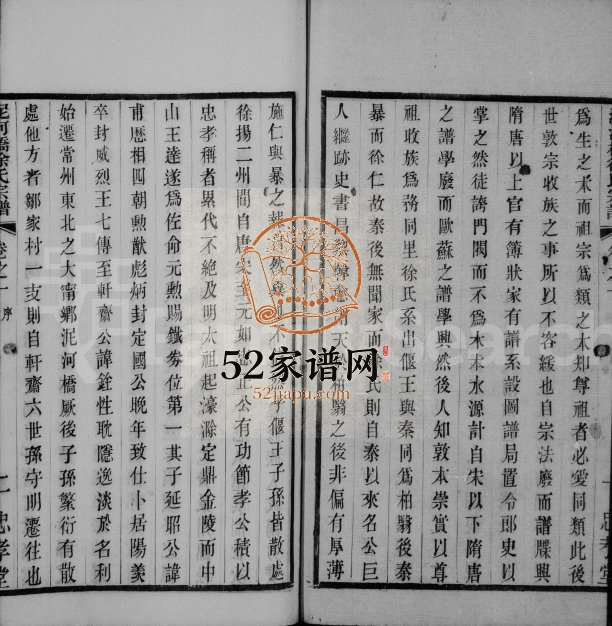 為生之本而祖宗為類之本知尊祖者必愛同類此後
世敦宗收族之事所以不容緩也自宗法廢而譜牒興
隋唐以上官有簿狀家有譜系設圖譜局置令郎史以
掌之然徒誇門閥而不為木本水源計自宋以下隋唐
之譜學廢而歐蘇之譜學興然後人知敦本崇實以尊
祖收族為務同里徐氏系出偃王與秦同為柏翳後秦
暴而徐仁故秦後無聞家而徐氏則自秦以來名公巨
人繼跡史書昌黎韓 天於柏翳之後非偏有厚薄
施仁與暴之報 然 不 偃王子孫皆散處
徐揚二州間自唐宋至元如 正公有功節孝公積以
忠孝稱者累代不絕及明太祖起濠滁定鼎金陵而中
山王達遂為佐命元勲賜鐵券位第一其子延昭公諱
甫歷相四朝勲猷彪炳封定國公晚年致仕卜居陽羨
卒封威烈王七傳至軒齋公諱銓性耽隱逸淡於名利
始遷常州東北之大甯鄉泥河橋厥後子孫繁衍有散
處他方者鄒家村一支則自軒齋六世孫守明遷往也
泥河橋徐氏宗譜
卷之一 序
二 忠孝堂
52家谱网
52jiapu.com